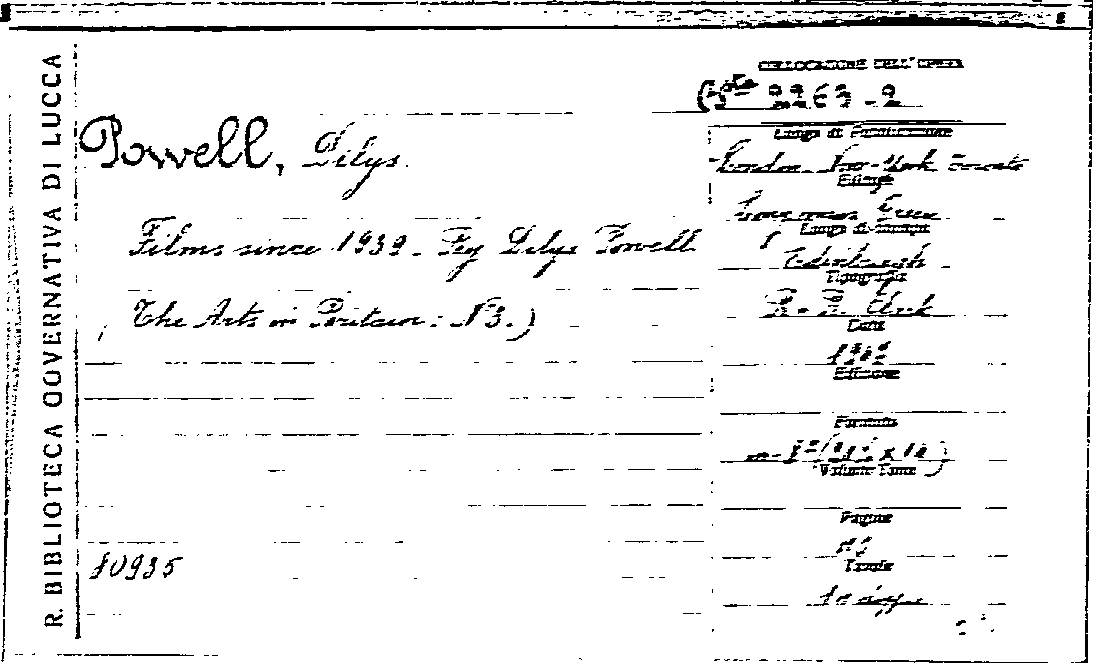 R. BIBLIOTECA GOVERNATIVA DI LUCCA
COLLOCAZIONE DELL'OPERA
2263-2
Powell, Dilys.
Films since 1939 - By Dilys Powell
The Arts in Britain: N 3.)
Luogo di Pubblicazione
London - New-York - Toronto
Editore
Longmans Green
Luogo di stampa
Edinburgh
Tipografia
R. - R. Clark
Data
Edizione
Formato
Volume Tomo
Pagine
Tavole
80935